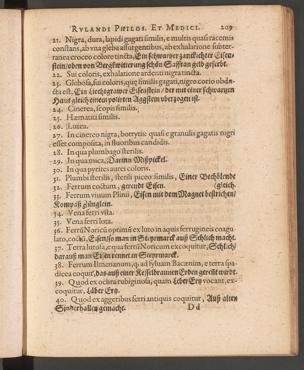 RVLANDI PHILOS. ET MEDICI. 209
21. Nigra, dura, lapidi gagati similis, e multis quasi racemis
constans, ab vna gleba assurgentibus, ab exhalatione subter-
ranea croceo colore tincta, Ein schwartzer zanckichter Eisen-
stein/oben von Bergkwitterung schön Saffran gelb gefarbt.
22. Sui coloris, exhalatione ardenti nigra tincta.
23. Glebosa, sui coloris, quæ similis gagati, nigro corio obdu-
cta est, Ein Liechtgrawer Eisenstein/ der mit einer schwartzen
Haut gleich einem polirten Agstein vberzogen ist.
24. Cinerea, scopis similis.
25. Hæmatiti similis.
26. Lutea.
27. In cinereo nigra, botrytis: quasi e granulis gagatis nigri
esset composita, in fluoribus candidis.
28. In qua plumbago sterilis.
29. In qua mica, Darinn Mißpickel.
30. In qua pyrites aurei coloris.
31. Plumbi sterilis, sterili piceo similis, Einer Bechblende
32. Ferrum coctum, gereudt Eisen. (gleich.
33. Ferrum viuum Plinii, Eisen mit dem Magnet bestrichen/
Kompaß Zünglein.
34. Vena ferri vsta.
35. Vena ferri lota.
36. Ferrũ Noricũ optimũ ex luto in aquis ferrugineis coagu-
lato, coctũ, Eisen/so man in Steyrmarck auß Schlich macht.
37. Terra lutosa, e qua ferrũ Noricum excoquitur, Schlich/
darauß man Eisen rennet in Steyrmarck.
38. Ferrum Ilmenanum, qd ad syluam Bacænim, e terra spa-
dicea coquit', das auß einer Kesselbraunen Erden geredt wirdt.
39. Quod ex ochra rubiginosa, quam Leber Ertz vocant, ex-
coquitur,
40. Quod ex aggestibus ferri antiquis coquitur, Auß alten
Sinderhallen gemacht. Dd